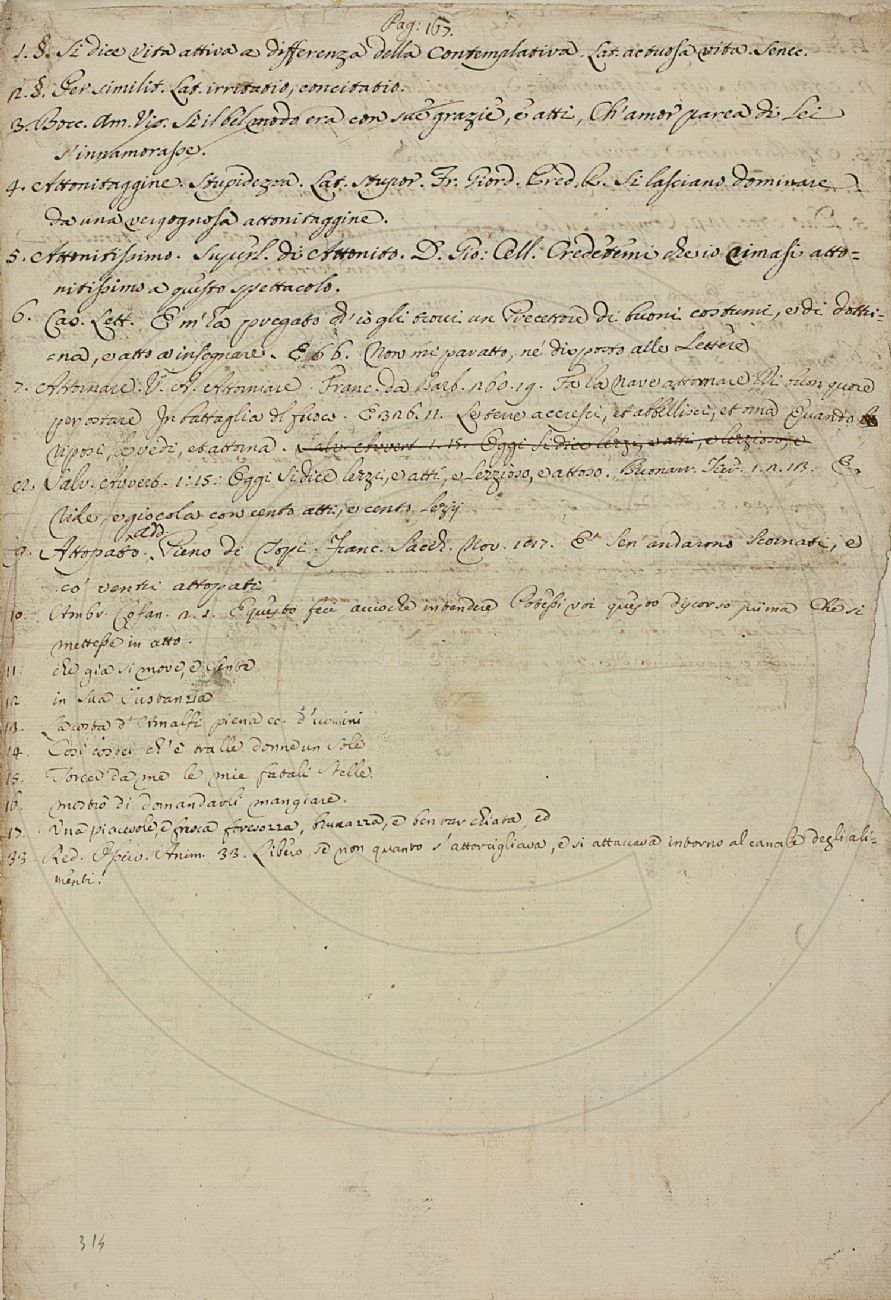 Pag: 167.
1. §. Si dice vita attiva a differenza della Contemplativa. Lat. actuosa vita. Senec.
2. §. Per similit. Lat. irritatio, concitatio.
3. Bocc. Am. Vis. Sì il bel modo era con sue grazie, e atti, Ch'amor parea di Lei
s'innamorasse.
4. Attonitaggine. Stupidezza. Lat. stupor. Fr. Giord. Pred. R. Si lasciano dominare
da una vergognosa attonitaggine.
5. Attonitissimo. Superl. di Attonito. D. Gio: Cell. Credetemi che io rimasi atto=
nitissimo a questo spettacolo.
6. Car. Lett. E m'ha pregato ch'io gli trovi un Precettore di buoni costumi, e di dottri=
na, e atto a insegnare. E 66. Non mi par atto, nè disposto alle Lettere
7. Attornare. V. A. Attorniare. Franc. da Barb. 260. 19. Fa la nave attornare Di buon quore
per ostare In battaglia di fuore. E 326. 11. Le terre accresci, et abbellisci, et orna Quando
riposi, le vedi, et attorna. Salv. Avvert. 1. 15. Eggi si dice lezzi, e atti, e lezzioso, e
Salv. Avvert. 1: 15: Eggi si dice lezzi, e atti, e Lezzioso, e attoso. Buonarr. Tav. 1. 2. 13. E
ride, e giocola con cento atti, e cento lezij
9. Attopato. add Pieno di Topi. Franc. Sacch. Nov. 187. E sen'andarono scornati, e
co' ventri attopati
10. Ambr. Cofan. 2. 1. E questo feci acciochè intendere Potessi voi questo discorso prima Che si
mettesse in atto.
11. che già si move, e sente
12 in sua sustanzia
13. La costa d'Amalfi piena ec. d'uomini
14. Così costei ch'è tralle donne un Sole
15. Torcer da me le mie fatali stelle
16. mostrò di domandarli mangiare.
17. Una piacevole, e fresca foresozza, brunazza, e ben tarchiata, ed
33. Red. Osserv. Anim. 33. Libero, se non quanto s'attorcigliava, e si attaccava intorno al canale degli ali=
menti.
314